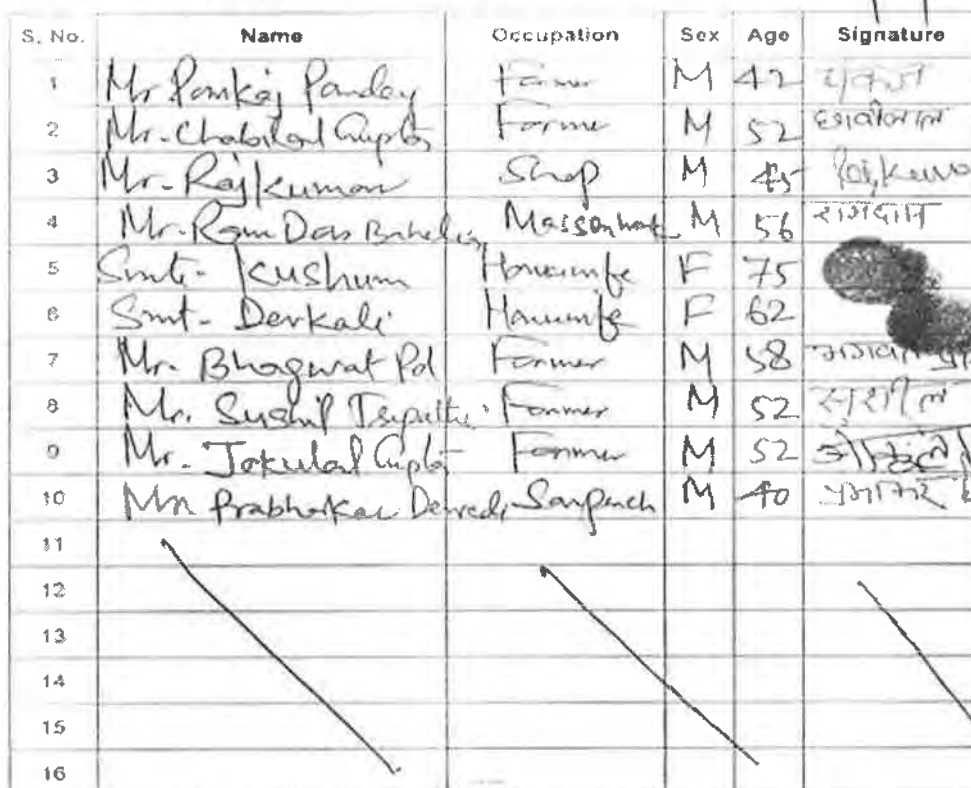 S. No. Name Occupation Sex Age Signature
1 Mr Pankaj Panday Farmer M 42 पंकज
2 Mr. Chabilal Gupta Farmer M 52 छावीलाल
3 Mr. Rajkumar Shop M 45 Rajkuma
4 Mr. Ram Das M 56 रामदास
5 Smt. Kushum Housewife F 75
6 Smt. Devkali Housewife F 62
7 Mr. Bhagwat Pd Farmer M 58 भागवत
8 Mr. Sushil Tripathi Farmer M 52 सुशील
9 Mr. Jokulal Gupta Farmer M 52
10 Mr Prabhakar Sarpanch M 40 प्रभाकर
11
12
13
14
15
16